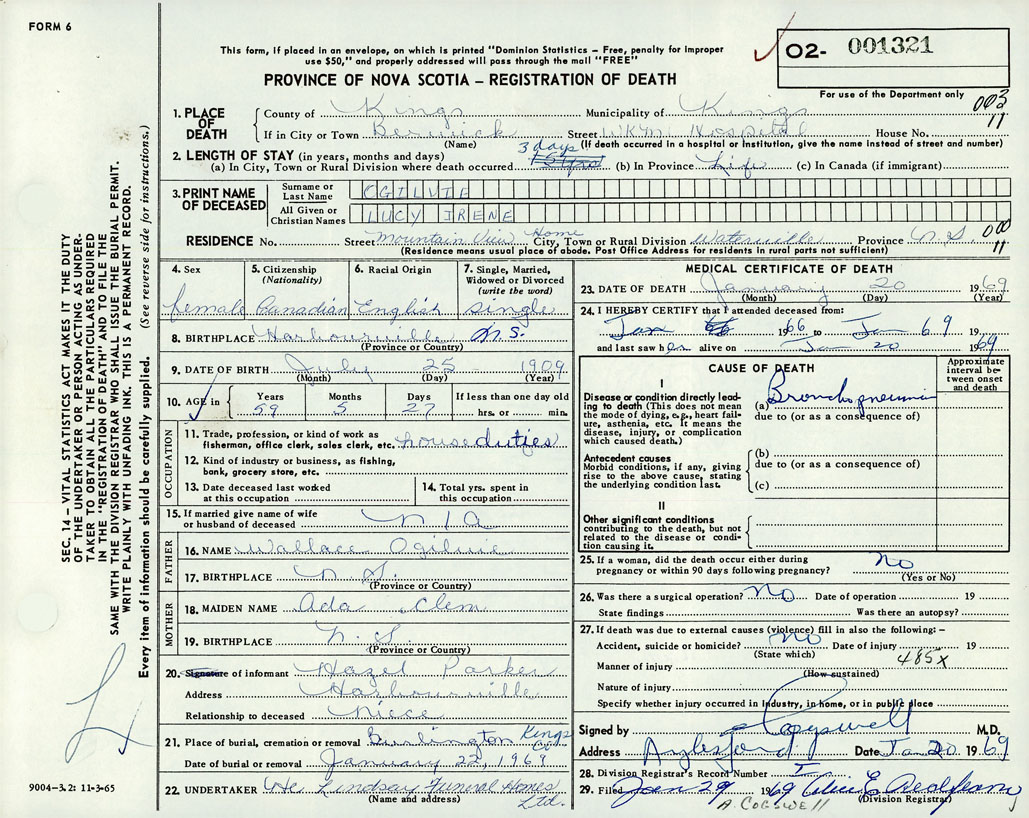 FORM 6
This form, if placed in an envelope, on which is printed "Dominion Statistics – Free, penalty for improper
use $50," and properly addressed will pass through the mail "FREE"
PROVINCE OF NOVA SCOTIA – REGISTRATION OF DEATH
O2- 001321
For use of the Department only
003
11
1. PLACE OF DEATH
County of Kings Municipality of Kings
If in City or Town Berwick Street WKM Hospital House No.
(Name) (If death occurred in a hospital or Institution, give the name instead of street and number)
2. LENGTH OF STAY (in years, months and days)
(a) In City, Town or Rural Division where death occurred 3 days (b) In Province Life (c) In Canada (if immigrant)
3. PRINT NAME OF DECEASED
Surname or Last Name OGILVIE
All Given or Christian Names LUCY IRENE
RESIDENCE No. Street Mountain View Home City, Town or Rural Division Waterville Province N S
(Residence means usual place of abode. Post Office Address for residents in rural parts not sufficient)
00
11
4. Sex
female
5. Citizenship
(Nationality)
Canadian
6. Racial Origin
English
7. Single, Married,
Widowed or Divorced
(write the word)
single
8. BIRTHPLACE Harbourville N.S.
(Province or Country)
9. DATE OF BIRTH July 25 1909
(Month) (Day) (Year)
10. AGE in
Years Months Days If less than one day old
59 5 27 hrs. or min.
OCCUPATION
11. Trade, profession, or kind of work as
fisherman, office clerk, sales clerk, etc. house duties
12. Kind of industry or business, as fishing,
bank, grocery store, etc.
13. Date deceased last worked
at this occupation
14. Total yrs. spent in
this occupation
15. If married give name of wife
or husband of deceased N/A
FATHER
16. NAME Wallace Ogilvie
17. BIRTHPLACE N. S.
(Province or Country)
MOTHER
18. MAIDEN NAME Ada Clem
19. BIRTHPLACE N. S.
(Province or Country)
20. Signature of informant Hazel Parker
Address Harbourville
Relationship to deceased Niece
21. Place of burial, cremation or removal Burlington Kings Co
Date of burial or removal January 22, 1969
22. UNDERTAKER The Lindsay Funeral Homes Ltd.
(Name and address)
MEDICAL CERTIFICATE OF DEATH
23. DATE OF DEATH January 20 1969
(Month) (Day) (Year)
24. I HEREBY CERTIFY that I attended deceased from:
Jan 1966 to Jan 69 19
and last saw her alive on Jan 20 1969
CAUSE OF DEATH
Approximate
interval be-
tween onset
and death
I
Disease or condition directly lead-
ing to death (This does not
mean the mode of dying, e.g., heart fail-
ure, asthenia, etc. It means the
disease, injury, or complication
which caused death.)
(a) Bronchopneumonia
due to (or as a consequence of)
Antecedent causes
Morbid conditions, if any, giving
rise to the above cause, stating
the underlying condition last.
(b)
due to (or as a consequence of)
(c)
II
Other significant conditions
contributing to the death, but not
related to the disease or condi-
tion causing it.
25. If a woman, did the death occur either during
pregnancy or within 90 days following pregnancy? No
(Yes or No)
26. Was there a surgical operation? No Date of operation 19
State findings Was there an autopsy?
27. If death was due to external causes (violence) fill in also the following: –
Accident, suicide or homicide? no Date of injury 19
(State which)
485X
Manner of injury
(How sustained)
Nature of injury
Specify whether injury occurred in industry, in home, or in public place
Signed by Cogswell M.D.
Address Aylesford Date Jan 20 1969
28. Division Registrar's Record Number 1
29. Filed Jan 29 1969
(Division Registrar)
A. COGSWELL
SEC. 14 – VITAL STATISTICS ACT MAKES IT THE DUTY
OF THE UNDERTAKER OR PERSON ACTING AS UNDER-
TAKER TO OBTAIN ALL THE PARTICULARS REQUIRED
IN THE "REGISTRATION OF DEATH" AND TO FILE THE
SAME WITH THE DIVISION REGISTRAR WHO SHALL ISSUE THE BURIAL PERMIT.
WRITE PLAINLY WITH UNFADING INK. THIS IS A PERMANENT RECORD.
Every item of information should be carefully supplied. (See reverse side for instructions.)
9004-3.2: 11-3-65